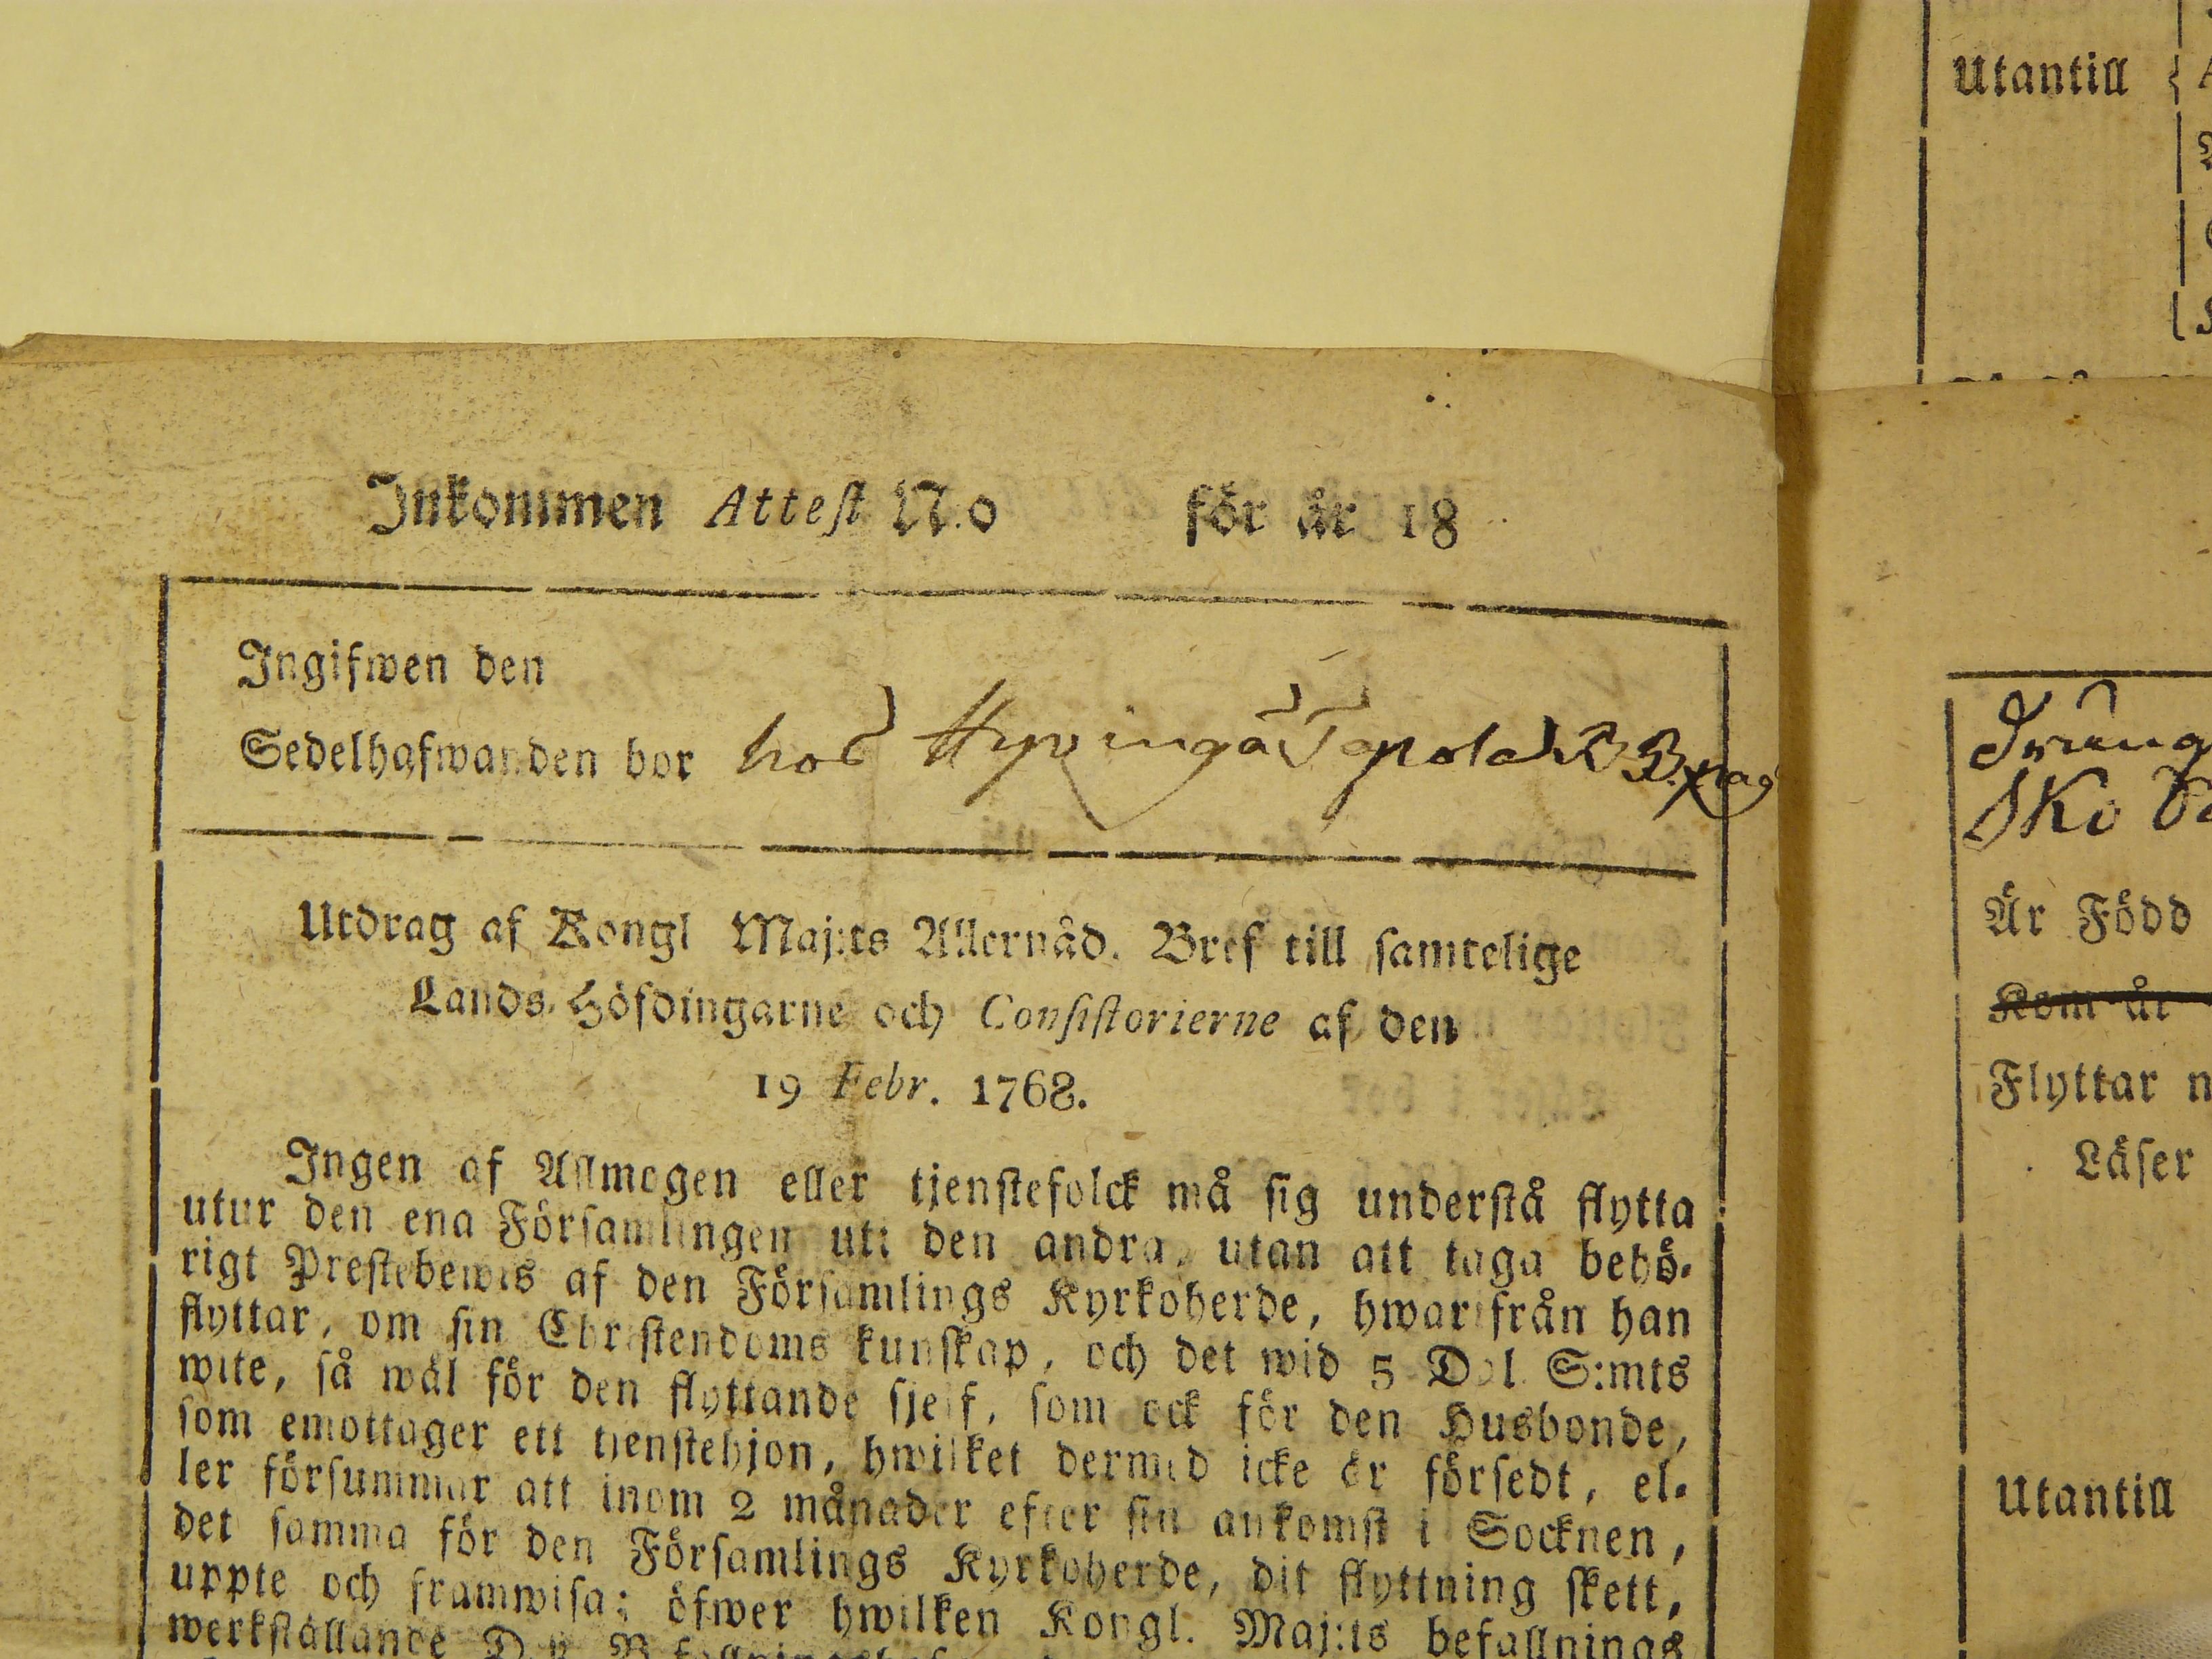 Inkommen Attest N.o för år 18
Ingifwen den
Sedelhafwanden bor hos
Utdrag af Kongl Maj:ts Allernåd. Bref till samtelige
Lands-Höfdingarne och Consistorierne af den
19 Febr. 1768.
Ingen af Allmogen eller tjenstefolck må sig understå flytta
utur den ena Församlingen uti den andra, utan att taga behö-
rigt Prestebewis af den Församlings Kyrkoherde, hwarifrån han
flyttar, om sin Christendoms kunskap, och det wid 5 Dal. S:mts
wite, så wäl för den flyttande sjelf, som ock för den Husbonde,
som emottager ett tjenstehjon, hwilket dermed icke är försedt, el-
ler försummar att inom 2 månader efter sin ankomst i Socknen,
det samma för den Församlings Kyrkoherde, dit flyttning skett,
uppte och framwisa; öfwer hwilken Kongl. Maj:ts befallnings
werkställande
Utantill
Är Född
Kom år
Flyttar
Läser
Utantill